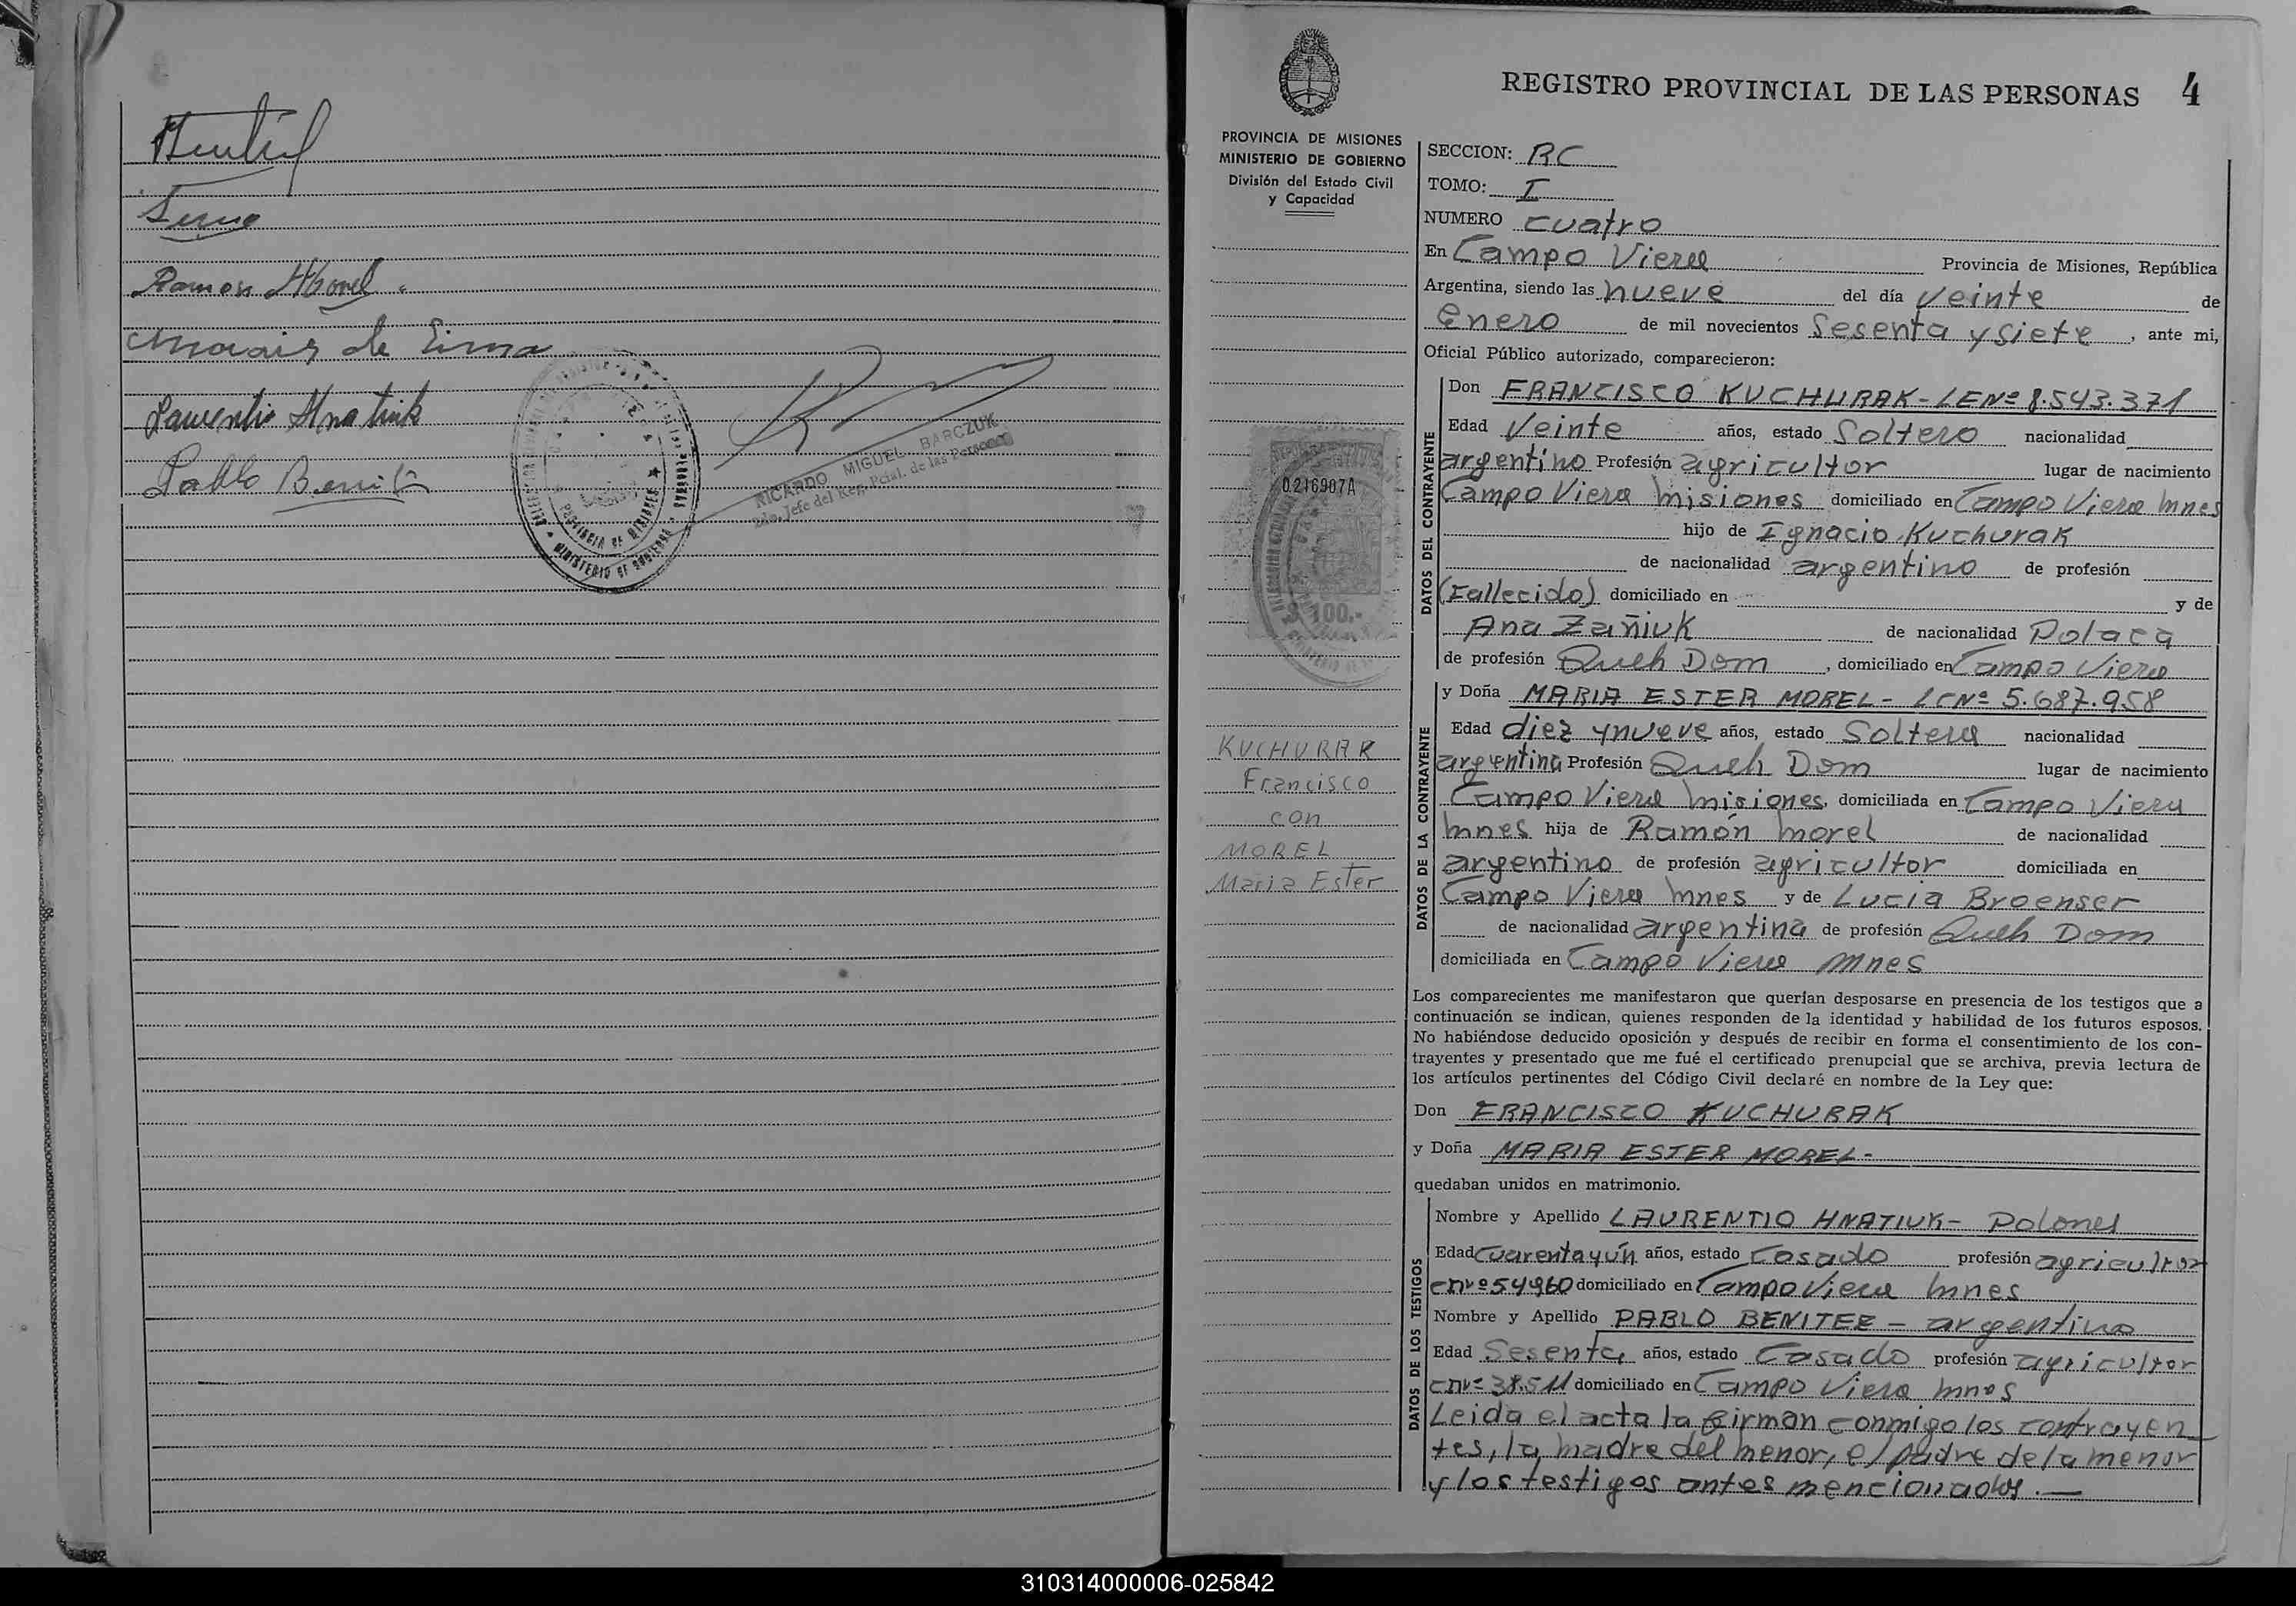 Ramon Morel
de Lima
Laurentio Hnatiuk
Pablo Benit
RICARDO MIGUEL BARCZUK
2do. Jefe del Reg. Pcial. de las Personas
PROVINCIA DE MISIONES
MINISTERIO DE GOBIERNO
REGISTRO PROVINCIAL DE LAS PERSONAS 4
PROVINCIA DE MISIONES
MINISTERIO DE GOBIERNO
División del Estado Civil
y Capacidad
0216907A
100.-
KUCHURAK
Francisco
con
MOREL
Maria Ester
SECCION: RC
TOMO: I
NUMERO cuatro
En Campo Viera Provincia de Misiones, República
Argentina, siendo las nueve del día veinte de
Enero de mil novecientos sesenta y siete, ante mi,
Oficial Público autorizado, comparecieron:
DATOS DEL CONTRAYENTE
Don FRANCISCO KUCHURAK - LENº 8.543.371
Edad veinte años, estado soltero nacionalidad
argentino Profesión agricultor lugar de nacimiento
Campo Viera Misiones domiciliado en Campo Viera Mnes
hijo de Ignacio Kuchurak
de nacionalidad argentino de profesión
(Fallecido) domiciliado en y de
Ana Zañiuk de nacionalidad Polaca
de profesión Queh Dom, domiciliado en Campo Viera
DATOS DE LA CONTRAYENTE
y Doña MARIA ESTER MOREL - LCNº 5.687.958
Edad diez y nueve años, estado Soltera nacionalidad
argentina Profesión Queh Dom lugar de nacimiento
Campo Viera Misiones, domiciliada en Campo Viera
Mnes hija de Ramón Morel de nacionalidad
argentino de profesión agricultor domiciliada en
Campo Viera Mnes y de Lucia Broenser
de nacionalidad argentina de profesión Queh Dom
domiciliada en Campo Viera Mnes
Los comparecientes me manifestaron que querían desposarse en presencia de los testigos que a
continuación se indican, quienes responden de la identidad y habilidad de los futuros esposos.
No habiéndose deducido oposición y después de recibir en forma el consentimiento de los con-
trayentes y presentado que me fué el certificado prenupcial que se archiva, previa lectura de
los artículos pertinentes del Código Civil declaré en nombre de la Ley que:
Don FRANCISCO KUCHURAK
y Doña MARIA ESTER MOREL-
quedaban unidos en matrimonio.
DATOS DE LOS TESTIGOS
Nombre y Apellido LAURENTIO HNATIUK - Polones
Edad cuarenta y ún años, estado Casado profesión agricultor
cnvº 54960 domiciliado en Campo Viera Mnes
Nombre y Apellido PABLO BENITEZ - argentino
Edad Sesenta años, estado Casado profesión agricultor
cnvº 38.511 domiciliado en Campo Viera Mnes
Leida el acta la firman conmigo los contrayen
tes, la madre del menor, el padre de la menor
y los testigos antes mencionados.—
310314000006-025842